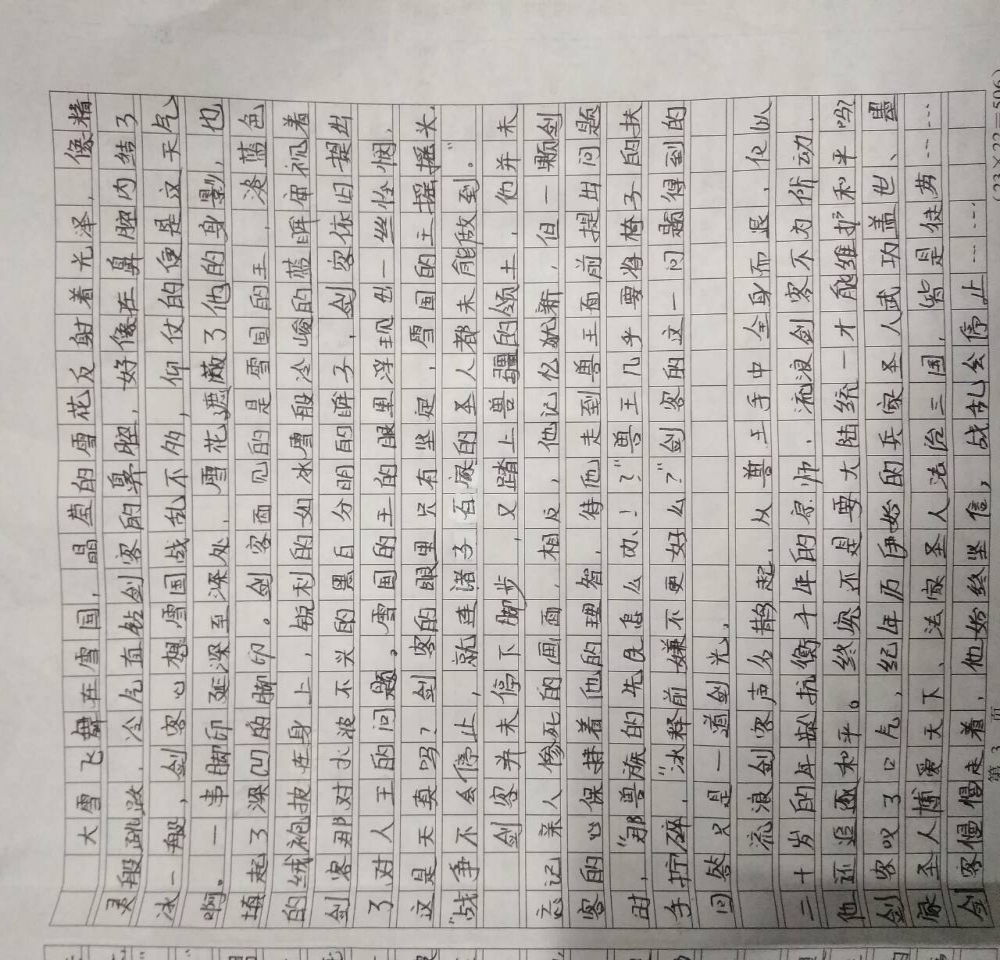 大雪飞舞在雪国，晶莹的雪花反射着光泽，像精
灵般跳跃，冷气直钻剑客的鼻腔，好像在鼻腔内结了
冰一般，剑客心想雪国战乱不多，仰仗的便是这天气
啊。一串脚印延深至深处，雪花遮蔽了他的身影，也
填起了深凹的脚印。剑客面见的是雪国的王，淡蓝色
的绒袍披在身上，锐利的如冰雪般冷峻的蓝眸审视着
剑客那对水波不兴的黑白分明的眸子，剑客依旧提出
了对人王的问题。雪国的王的眼里浮现出一丝怜悯，
这是天真吗？剑客的眼里只有坚定，雪国的王摇摇头，
“战争不会停止，就连诸子百家的圣人都未能做到。”
剑客并未停下脚步，又踏上兽疆的领土，他并未
忘记亲人惨死的画面，相反，他记忆犹新，但一颗剑
客的心保持着他的理智，待他走到兽王面前提出问题
时，“那兽族的先民怎么办！？”兽王几乎要将椅子的扶
手拧碎，“冰释前嫌不更好么？”剑客的这一问题得到的
回答只是一道剑光。
流浪剑客声名鹊起，从兽王手中全身而退，他以
二十岁的年龄抗衡千年的宗师，流浪剑客不为所动，
他还追逐和平。终究还是要大陆统一才能维护和平吗？
剑客叹了口气，纪年历伊始的兵家圣人武功盖世、墨
家圣人博爱天下、法家圣人法治三国，皆是徒劳……
剑客慢慢走着，他始终坚信，战乱会停止……
第3页
(23×22=506)